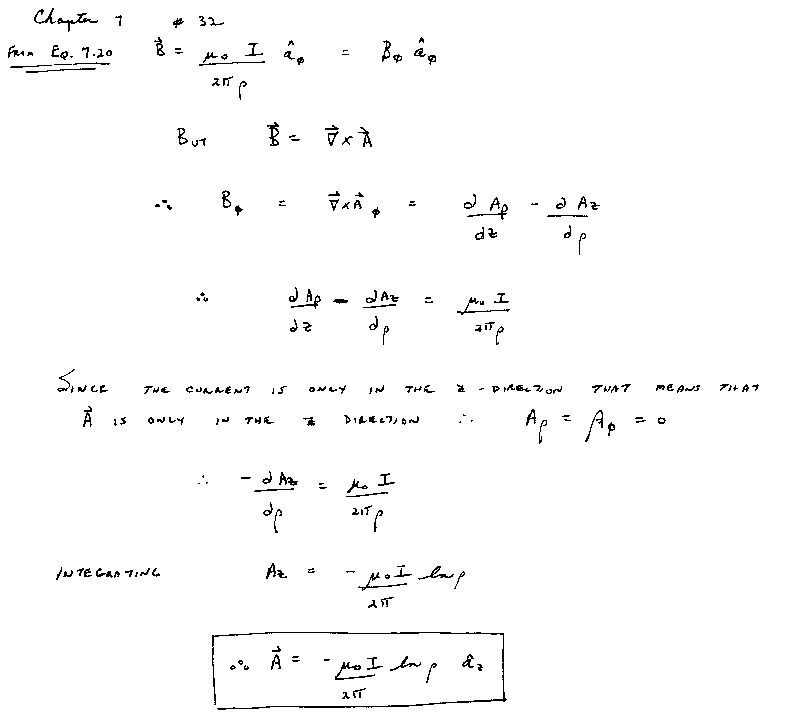 Chapter 7 # 32
From Eq. 7.20 B⃗ = μ₀ I / 2πρ â_φ = B_φ â_φ
But B⃗ = ∇⃗ × A⃗
∴ B_φ = ∇⃗×A⃗ _φ = ∂A_ρ/∂z - ∂A_z/∂ρ
∴ ∂A_ρ/∂z - ∂A_z/∂ρ = μ₀ I / 2πρ
SINCE THE CURRENT IS ONLY IN THE Z-DIRECTION THAT MEANS THAT
A⃗ IS ONLY IN THE Z DIRECTION ∴ A_ρ = A_φ = 0
∴ - ∂A_z/∂ρ = μ₀ I / 2πρ
INTEGRATING A_z = - μ₀ I / 2π ln ρ
∴ A⃗ = - μ₀ I / 2π ln ρ â_z